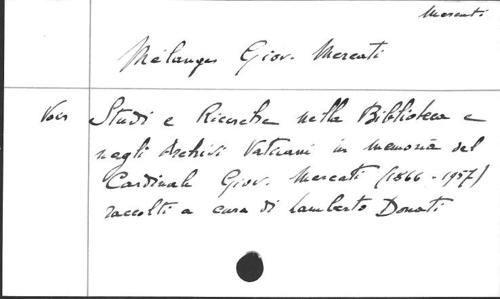 Mercati
Mélanges Giov. Mercati
Voir Studi e Ricerche nella Biblioteca e
negli Archivi Vaticani in memoria del
Cardinale Giov. Mercati (1866-1957)
raccolti a cura di Lamberto Donati